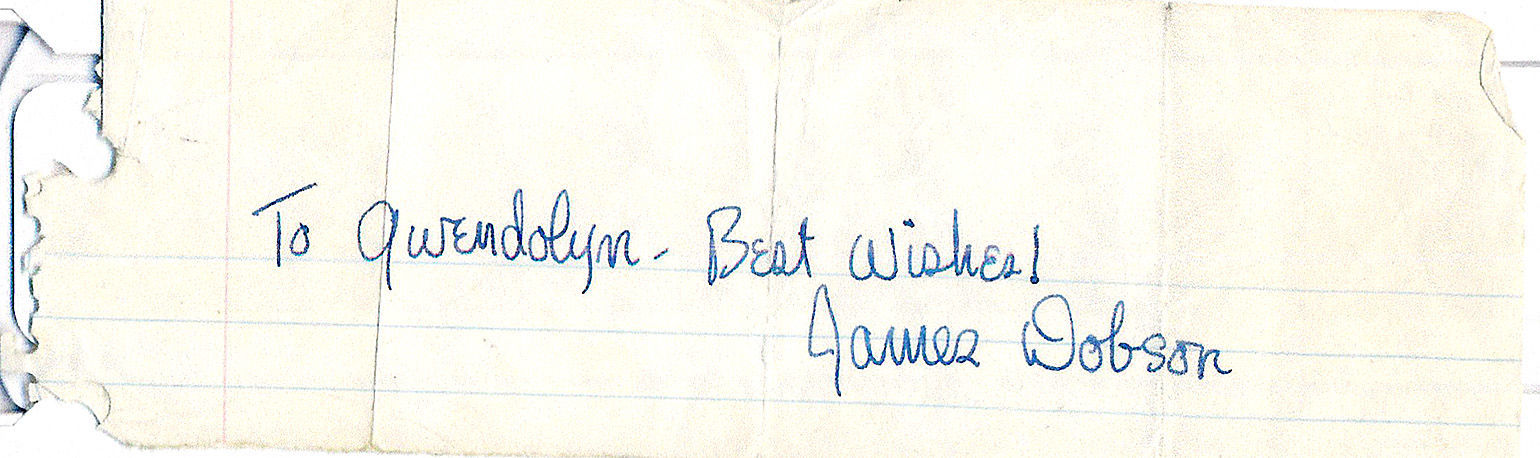 To Gwendolyn - Best Wishes!
James Dobson